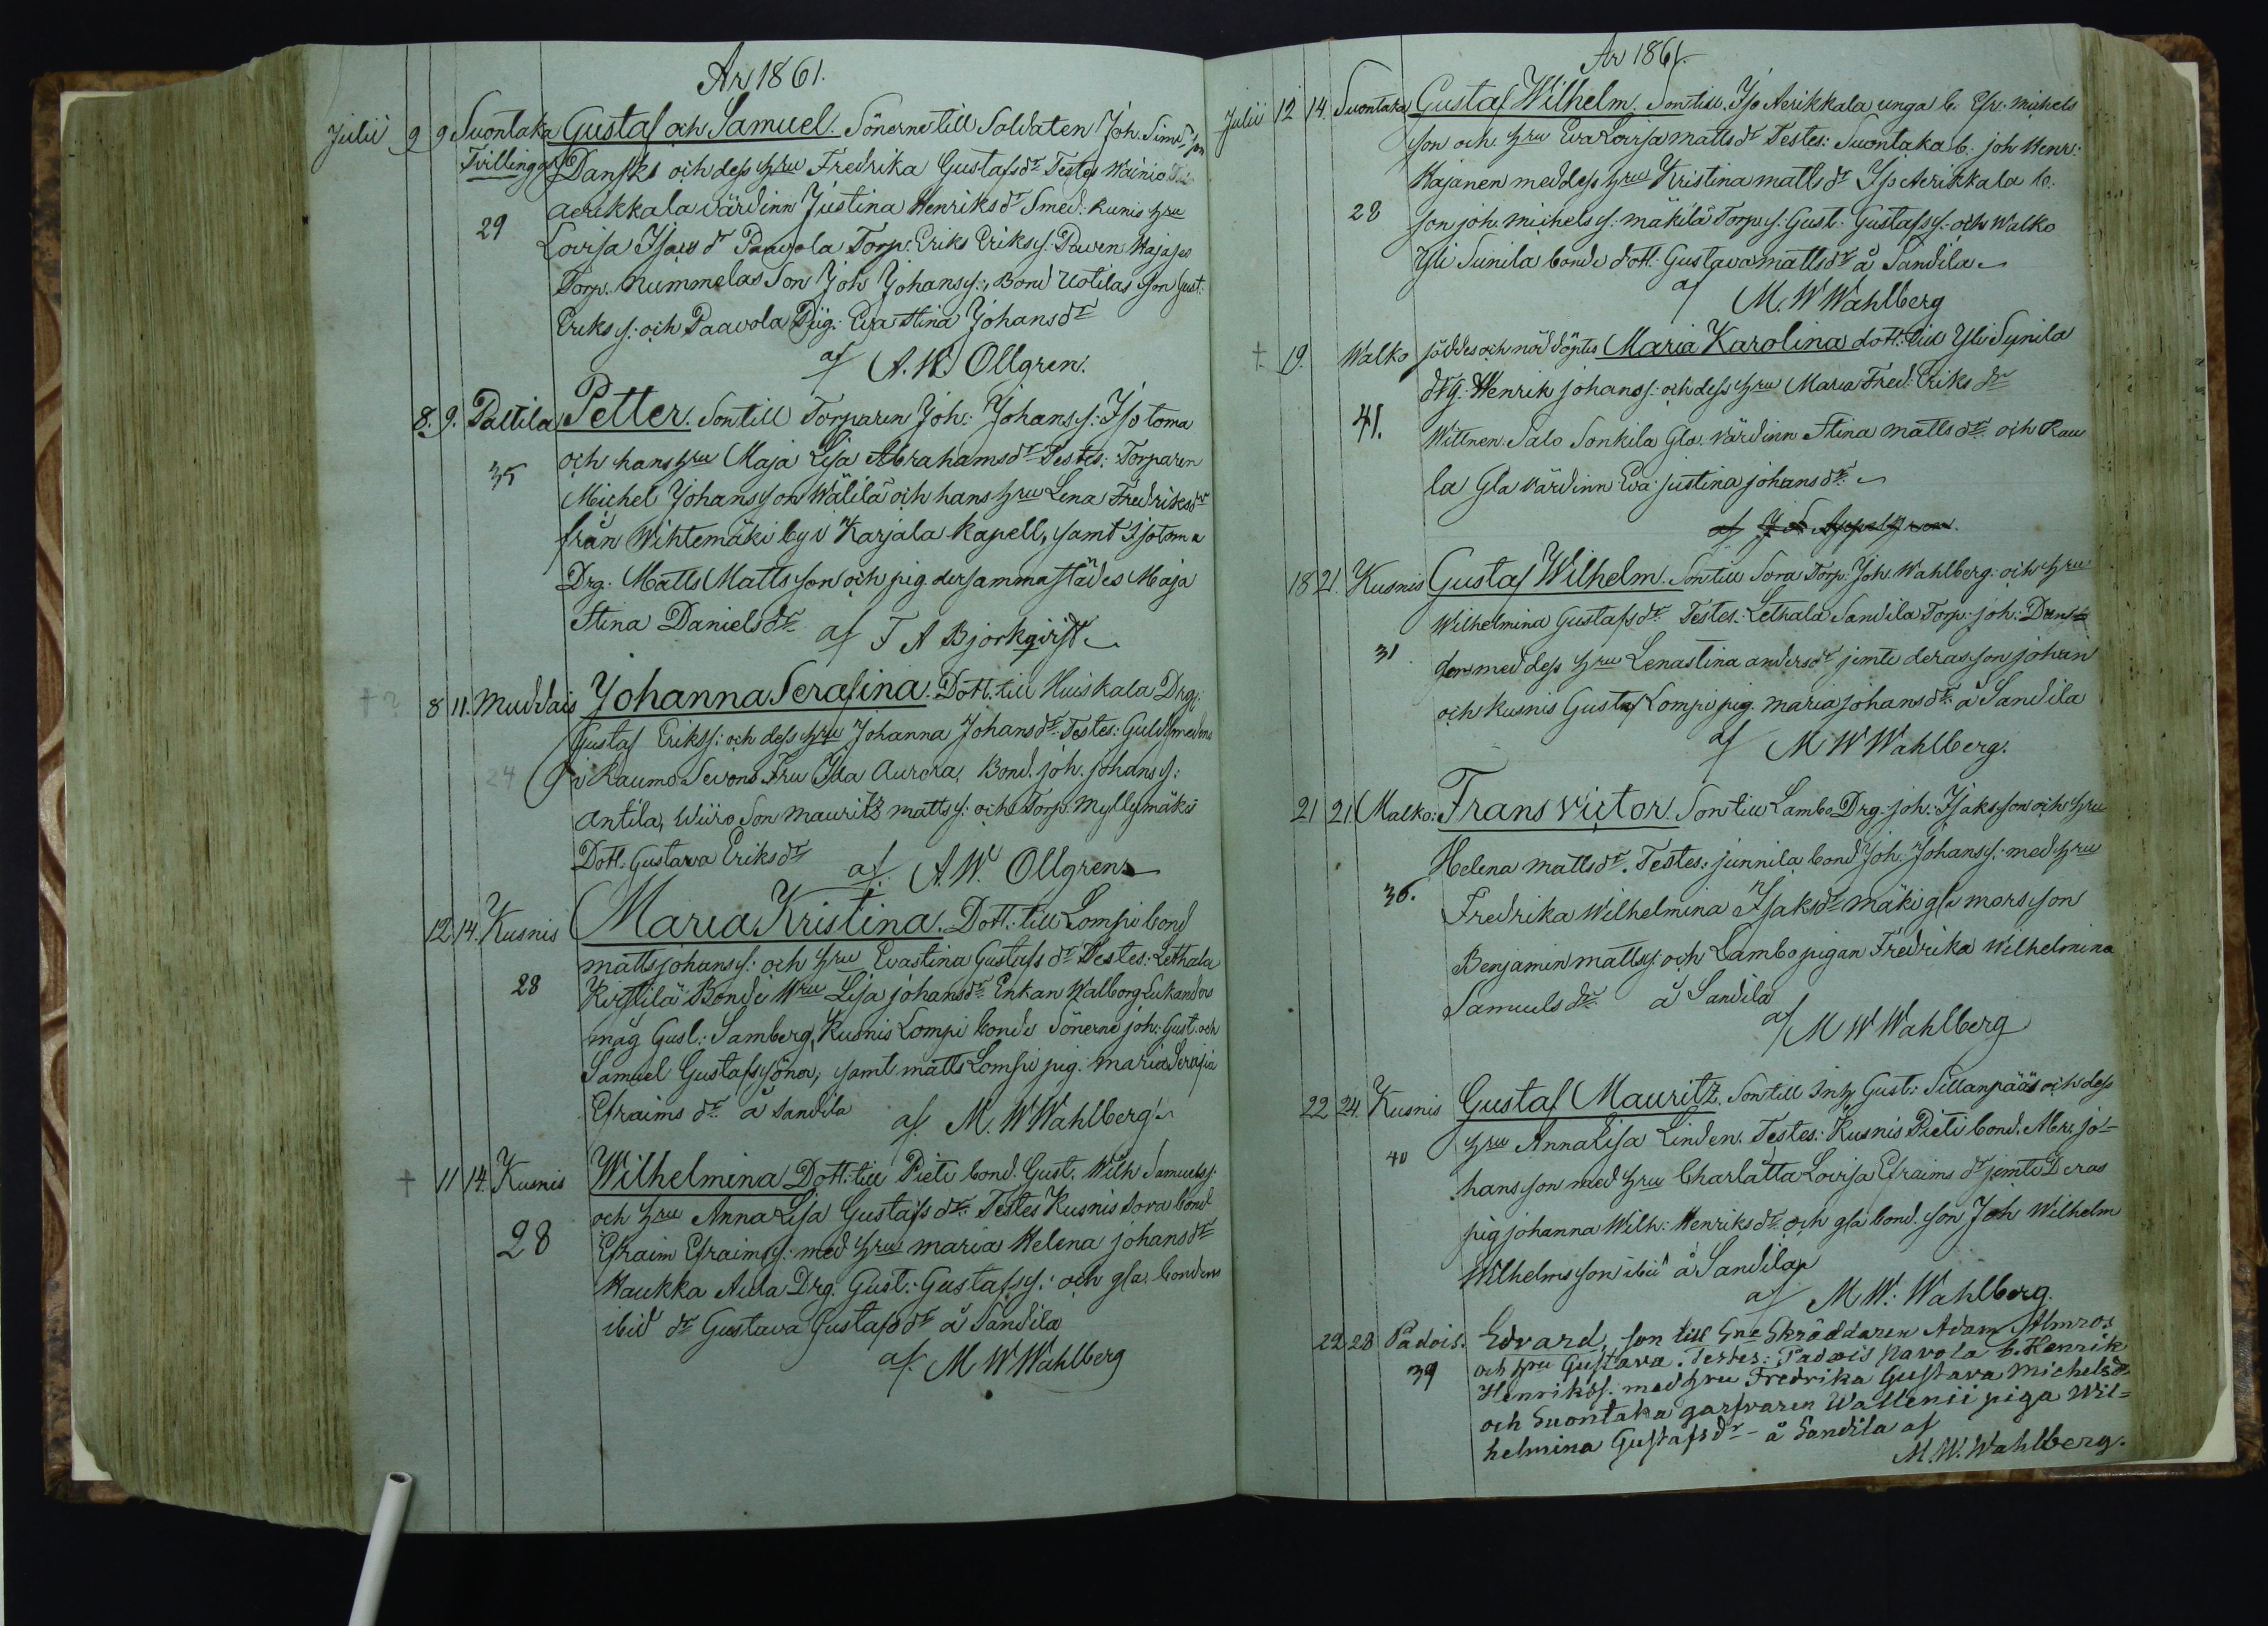 År 1861.
Julii 9 9 Suontaka Gustaf och Samuel. Sönerne till Soldaten Joh. Sims son
Tvillingar Dansks och dess hru Fredrika Gustafsdr Testes Wainio
29 Aerikkala värdinn Justina Henriksdr Smed: Kunis hru
Lovisa Isaksdr Paavola Torp. Eriks Erikss. Dwen Kajases
Torp. Nummelas Son Joh Johanss:, Bond Uotilas son Gust.
Erikss: och Paavola Pig. Eva Stina Johansdr
af A. W. Ollgren.
8. 9. Paltila Petter. Son till Torparen Joh: Johanss: Iso toma
och hans hru Maja Lisa Abrahamsdr Testes: Torparen
35 Michel Johansson Wälilä och hans hru Lena Fredriksdr
från Wihtemäki by i Karjala Kapell, samt Isotoma
Drg. Matts Mattsson och pig. dersammastädes Maja
Stina Danielsdr af F A Bjorkqvist
† ? 8 11. Muddais Johanna Serafina. Dott. till Huiskala Drg.
Gustaf Erikss: och dess hru Johanna Johansdr Testes: Guldsmedens
24 i Raumo Sevons Fru Ida Aurora, Bond. joh. johans s:
Antila, Wiiro Son Mauritz Matts s: och Torp. Myllymäkis
Dott. Gustava Eriksdr af A. W. Ollgren
12. 14. Kusnis Maria Kristina. Dott. till Lompi bond
Matts johans s: och hru Evastina Gustafsdr Testes: Lethala
28 Kirstilä Bonde Hru Lisa johansdr Enkan Walborg Lukanders
måg Gust.: Samberg, Kusnis Lompi bonde Sönerne joh: Gust. och
Samuel Gustafssöner, samt matts Lompi pig. Maria Serafia
Efraimsdr å Sandila af. M. W Wahlberg
† 11 14. Kusnis Wilhelmina Dott: till Pieti bond. Gust. Wilh Samuelss:
och hru Anna Lisa Gustafsdr. Testes Kusnis Sora bond
28 Efraim Efraimss: med hru Maria Helena johansdr
Haukka Aula Drg. Gust: Gustafss: och gla bondens
ibid dr Gustava Gustafsdr å Sandila
af. M W Wahlberg
År 1861.
Julii 12 14. Suontaka Gustaf Wilhelm. Son till Iso Aerikkala unga b. Efr. Michels
son och hru Eva Lovisa Mattsdr Testes: Suontaka b. joh Henr:
Kajanen med dess hru Kristina Mattsdr Iso Aerikkala b.
28 son joh. michelss. mäkilä Torps: Gust. Gustafss: och Walko
Yli Sunila bonde dott: Gustava Mattsdr å Sandila
af M. W Wahlberg
† 19. Walko föddes och nöddöptes Maria Karolina dott. till Yli Synila
drg: Henrik johanss: och dess hru Maria Fred: Eriksdr
41. Wittnen: Salo Sonkila Gla. värdinn Stina Mattsdr och Rau
la Gla värdinn Eva justina johansdr
18 21. Kusnis Gustaf Wilhelm. Son till Sora Torp. Joh. Wahlberg. och hru
Wilhelmina Gustafsdr Testes: Lethala Sandila Torp. joh: Dans
31 ders med dess hru Lenastina andersdr jemte deras son johan
och Kusnis Gustaf Lompi pig. Maria johansdr å Sandila
af M W Wahlberg.
21 21. Malko: Frans Victor. Son till Lambo Drg. joh: Isaksson och hru
Helena Mattsdr. Testes: junnila bond Joh. Johanss: med hru
36. Fredrika Wilhelmina Isaksdr mäki gla mors son
Benjamin Matts s: och Lambo pigan Fredrika Wilhelmina
Samuelsdr å Sandila
af M W Wahlberg
22 24. Kusnis Gustaf Mauritz. Son till Inh. Gust: Sillanpääs och dess
40 hru Anna Lisa Linden. Testes: Kusnis Pieti bond. Abr: jo-
hansson med hru Charlåtta Lovisa Efraimsdr jemte Deras
pig johanna Wilh: Henriksdr och gla bond. son Joh Wilhelm
Wilhelmsson ibid å Sandila
af M W: Wahlberg.
22 28 Padois. Edvard, son till Sne Skräddaren Adam Almros
39 och hru Gustava. Testes: Padois Pavola b. Henrik
Henrikss. med hru Fredrika Gustava Michelsdr
och Suontaka garfvaren Wallenii piga Wil=
helmina Gustafsdr - å Sandila af
M. W. Wahlberg.